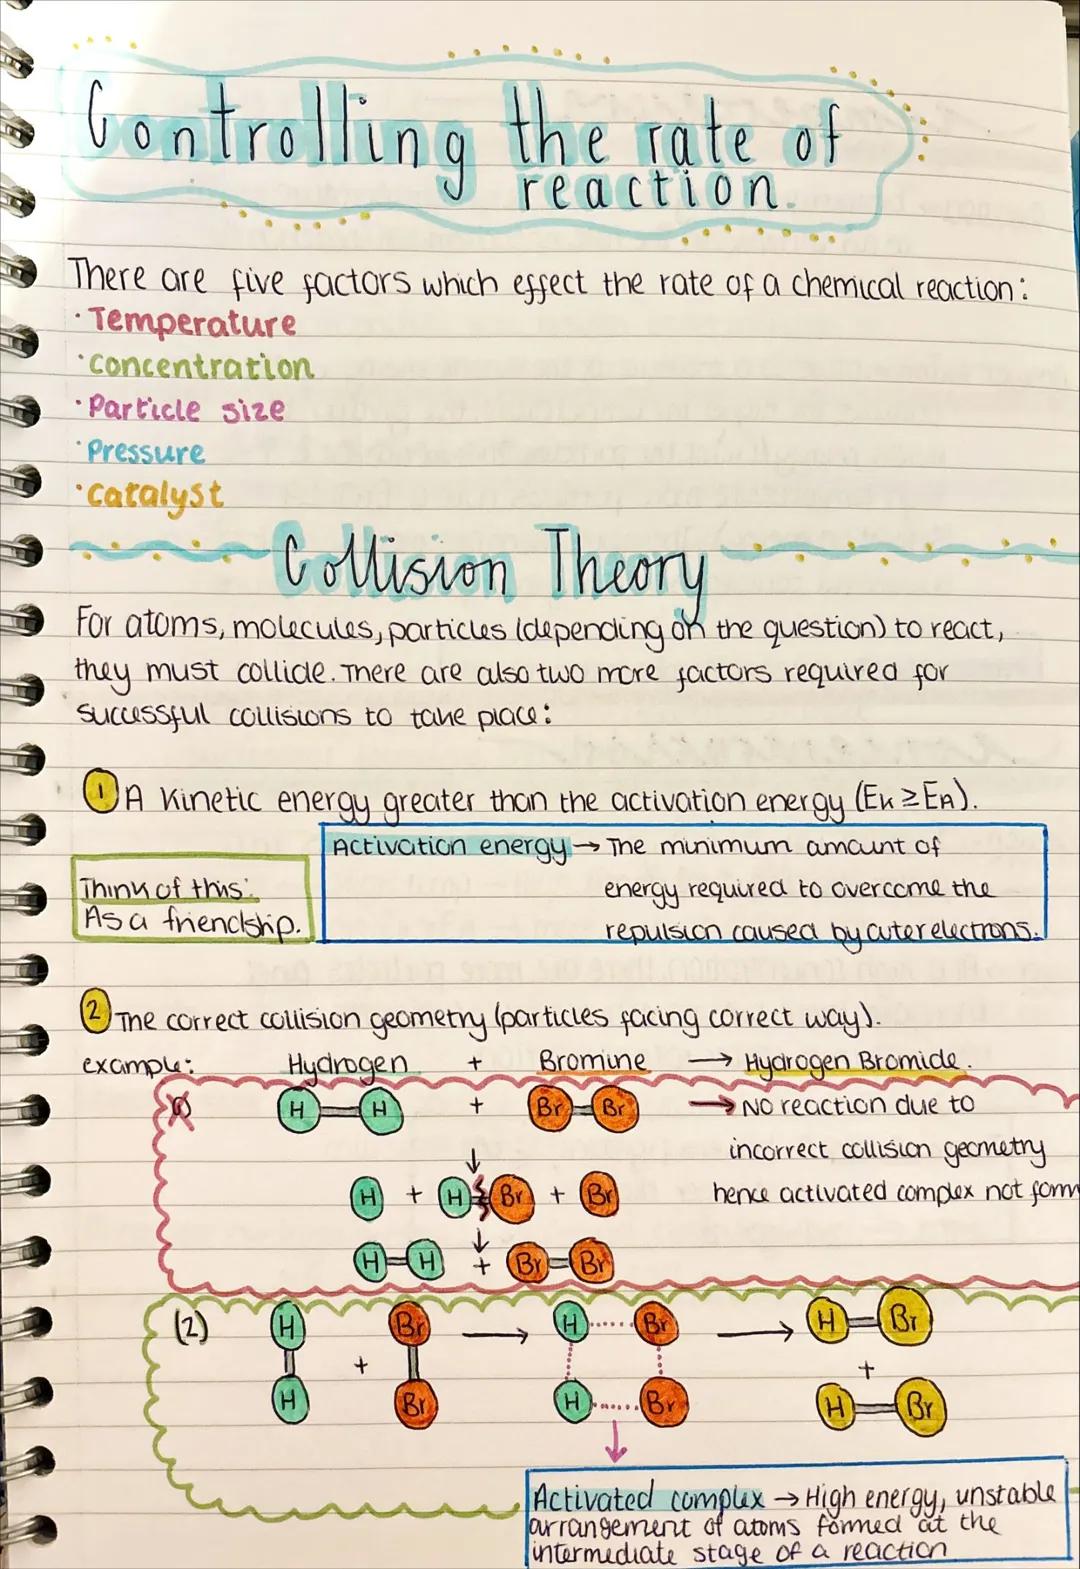 Controlling the rate of
reaction.
There are five factors which effect the rate of a chemical reaction:
· Temperature
· Concentration
· Particle size
· Pressure
· Catalyst
Collision Theory
For atoms, molecules, particles (depending on the question) to react,
they must collide. There are also two more factors required for
successful collisions to take place:
1 A kinetic energy greater than the activation energy (Ek ≥ EA).
Activation energy → The minimum amount of
energy required to overcome the
repulsion caused by outer electrons.
Think of this:
As a friendship.
2 The correct collision geometry (particles facing correct way).
example: Hydrogen + Bromine → Hydrogen Bromide.
H H + Br Br → No reaction due to
incorrect collision geometry
H + H Br + Br hence activated complex not form
H H + Br Br
(2) H Br → H Br → H Br
+ +
H Br H Br H Br
Activated complex → High energy, unstable
arrangement of atoms formed at the
intermediate stage of a reaction